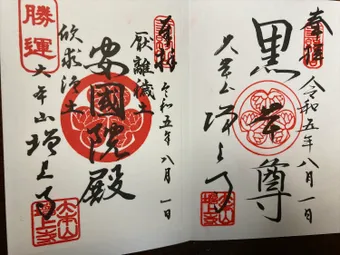 奉拝
令和五年八月一日
黒本尊
大本山増上寺
奉拝
令和五年八月一日
厭離穢土
安國院殿
欣求浄土
勝運
大本山増上寺
大本山増上寺